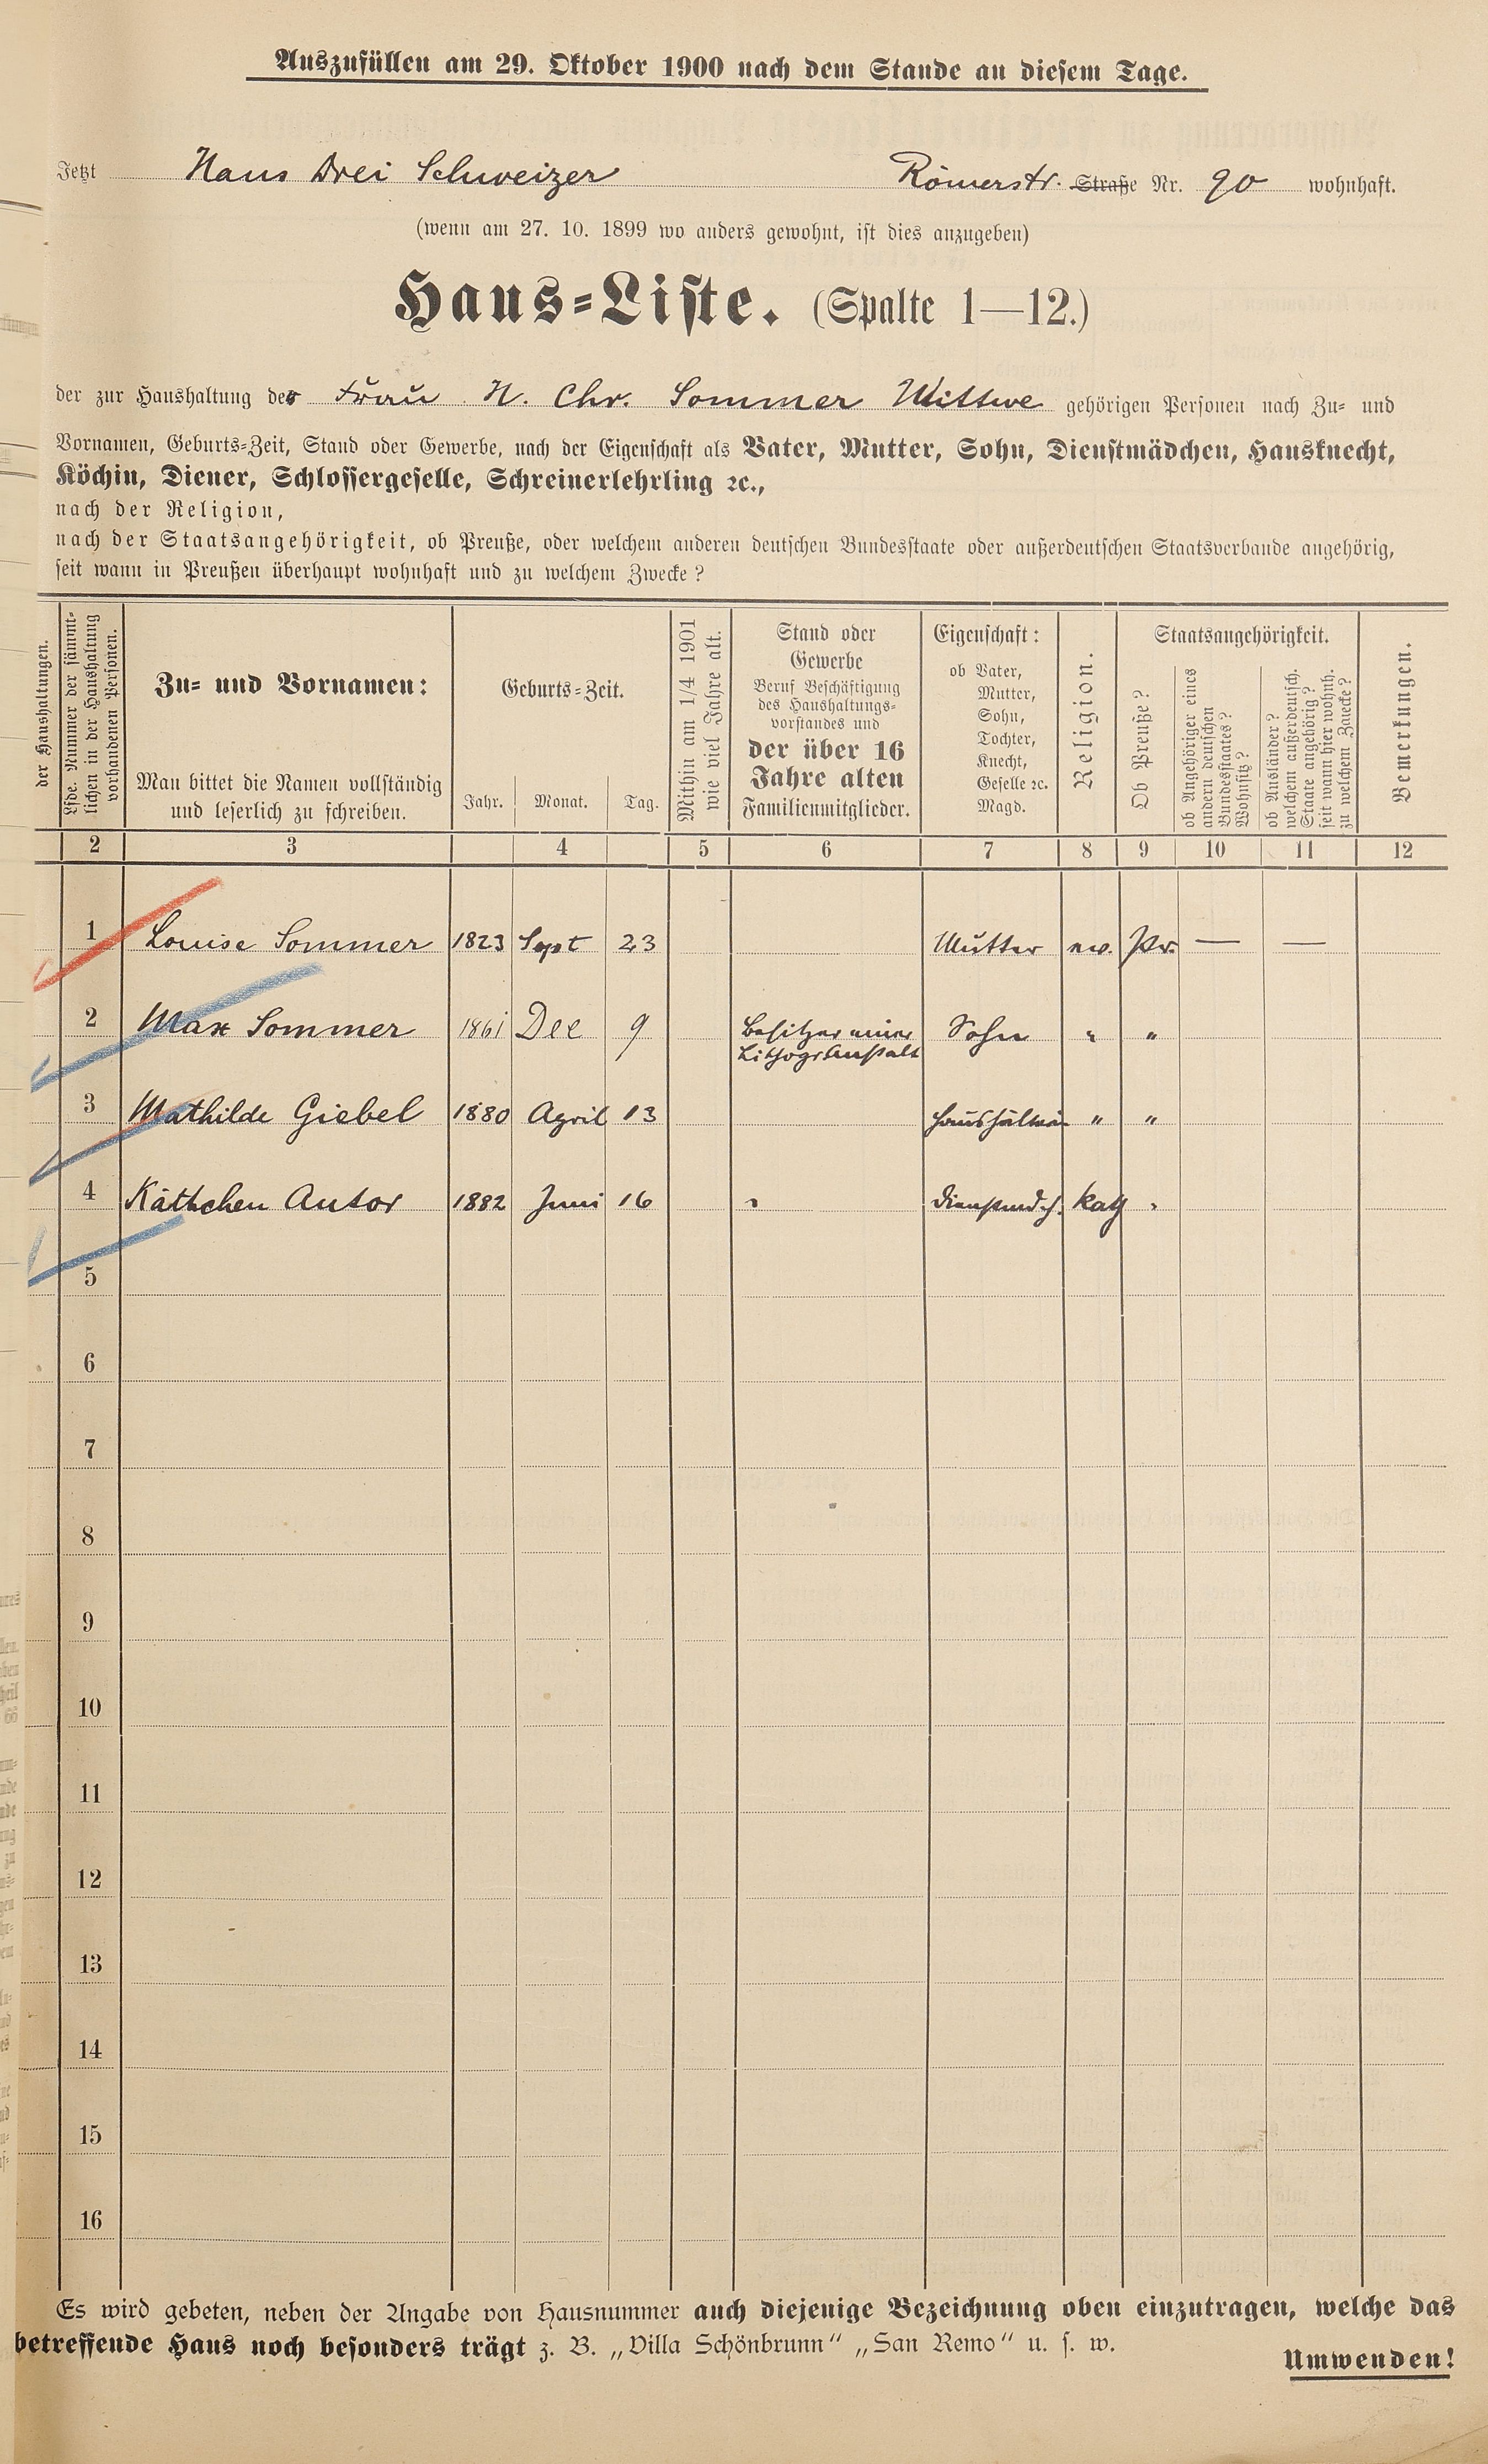 Auszufüllen am 29. Oktober 1900 nach dem Stande an diesem Tage.
Jetzt Haus Drei Schweizer Römerstr. Straße Nr. 90 wohnhaft.
(wenn am 27. 10. 1899 wo anders gewohnt, ist dies anzugeben)
Haus-Liste. (Spalte 1—12.)
der zur Haushaltung der Frau H. Chr. Sommer Wittwe gehörigen Personen nach Zu- und
Vornamen, Geburts-Zeit, Stand oder Gewerbe, nach der Eigenschaft als Vater, Mutter, Sohn, Dienstmädchen, Hausknecht,
Köchin, Diener, Schlossergeselle, Schreinerlehrling ꝛc.,
nach der Religion,
nach der Staatsangehörigkeit, ob Preuße, oder welchem anderen deutschen Bundesstaate oder außerdeutschen Staatsverbande angehörig,
seit wann in Preußen überhaupt wohnhaft und zu welchem Zwecke?
der Haushaltungen.
Lfde. Nummer der sämmt-
lichen in der Haushaltung
vorhandenen Personen.
Zu- und Vornamen:
Man bittet die Namen vollständig
und leserlich zu schreiben.
Geburts-Zeit.
Jahr. Monat. Tag.
Mithin am 1/4 1901
wie viel Jahre alt.
Stand oder
Gewerbe
Beruf Beschäftigung
des Haushaltungs-
vorstandes und
der über 16
Jahre alten
Familienmitglieder.
Eigenschaft:
ob Vater,
Mutter,
Sohn,
Tochter,
Knecht,
Geselle ꝛc.
Magd.
Religion.
Staatsangehörigkeit.
Ob Preuße?
ob Angehöriger eines
andern deutschen
Bundesstaates?
Wohnsitz?
ob Ausländer?
welchem außerdeutsch.
Staate angehörig?
seit wann hier wohnh.
zu welchem Zwecke?
Bemerkungen.
2 3 4 5 6 7 8 9 10 11 12
1 Louise Sommer 1823 Sept 23 Mutter ev. Pr. — —
2 Max Sommer 1861 Dec 9 Besitzer einer Sohn " "
Lithogr Anstalt
3 Mathilde Giebel 1880 April 13 Haushälterin " "
4 Käthchen Autor 1882 Juni 16 " Dienstmdch. kath "
5
6
7
8
9
10
11
12
13
14
15
16
Es wird gebeten, neben der Angabe von Hausnummer auch diejenige Bezeichnung oben einzutragen, welche das
betreffende Haus noch besonders trägt z. B. „Villa Schönbrunn“ „San Remo“ u. s. w.
Umwenden!